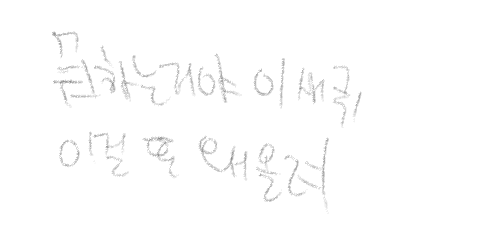 뭐하는거야 이새귀,
이걸 또 왜올려